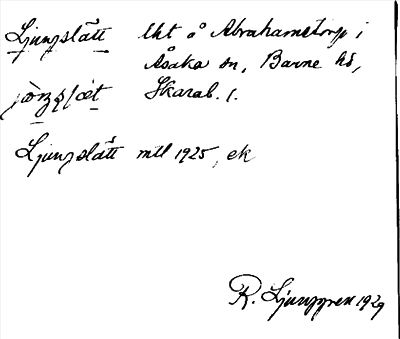 Ljungslätt lht å Abrahamstorp i
Åsaka sn, Barne hd,
Skarab. l.
Ljungslätt mtl 1925, ek
R. Ljunggren 1929